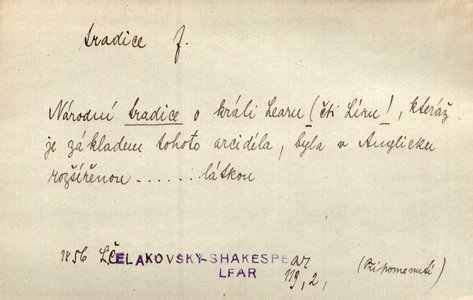 tradice f.
Národní tradice o králi Learu (čti Líru!, kteráž
je základem tohoto arcidíla, byla v Anglicku
rozšířenou ....... látkou
1856 L. ČELAKOVSKÝ-SHAKESPEAR
LEAR 119, 2,
(Připomenutí)